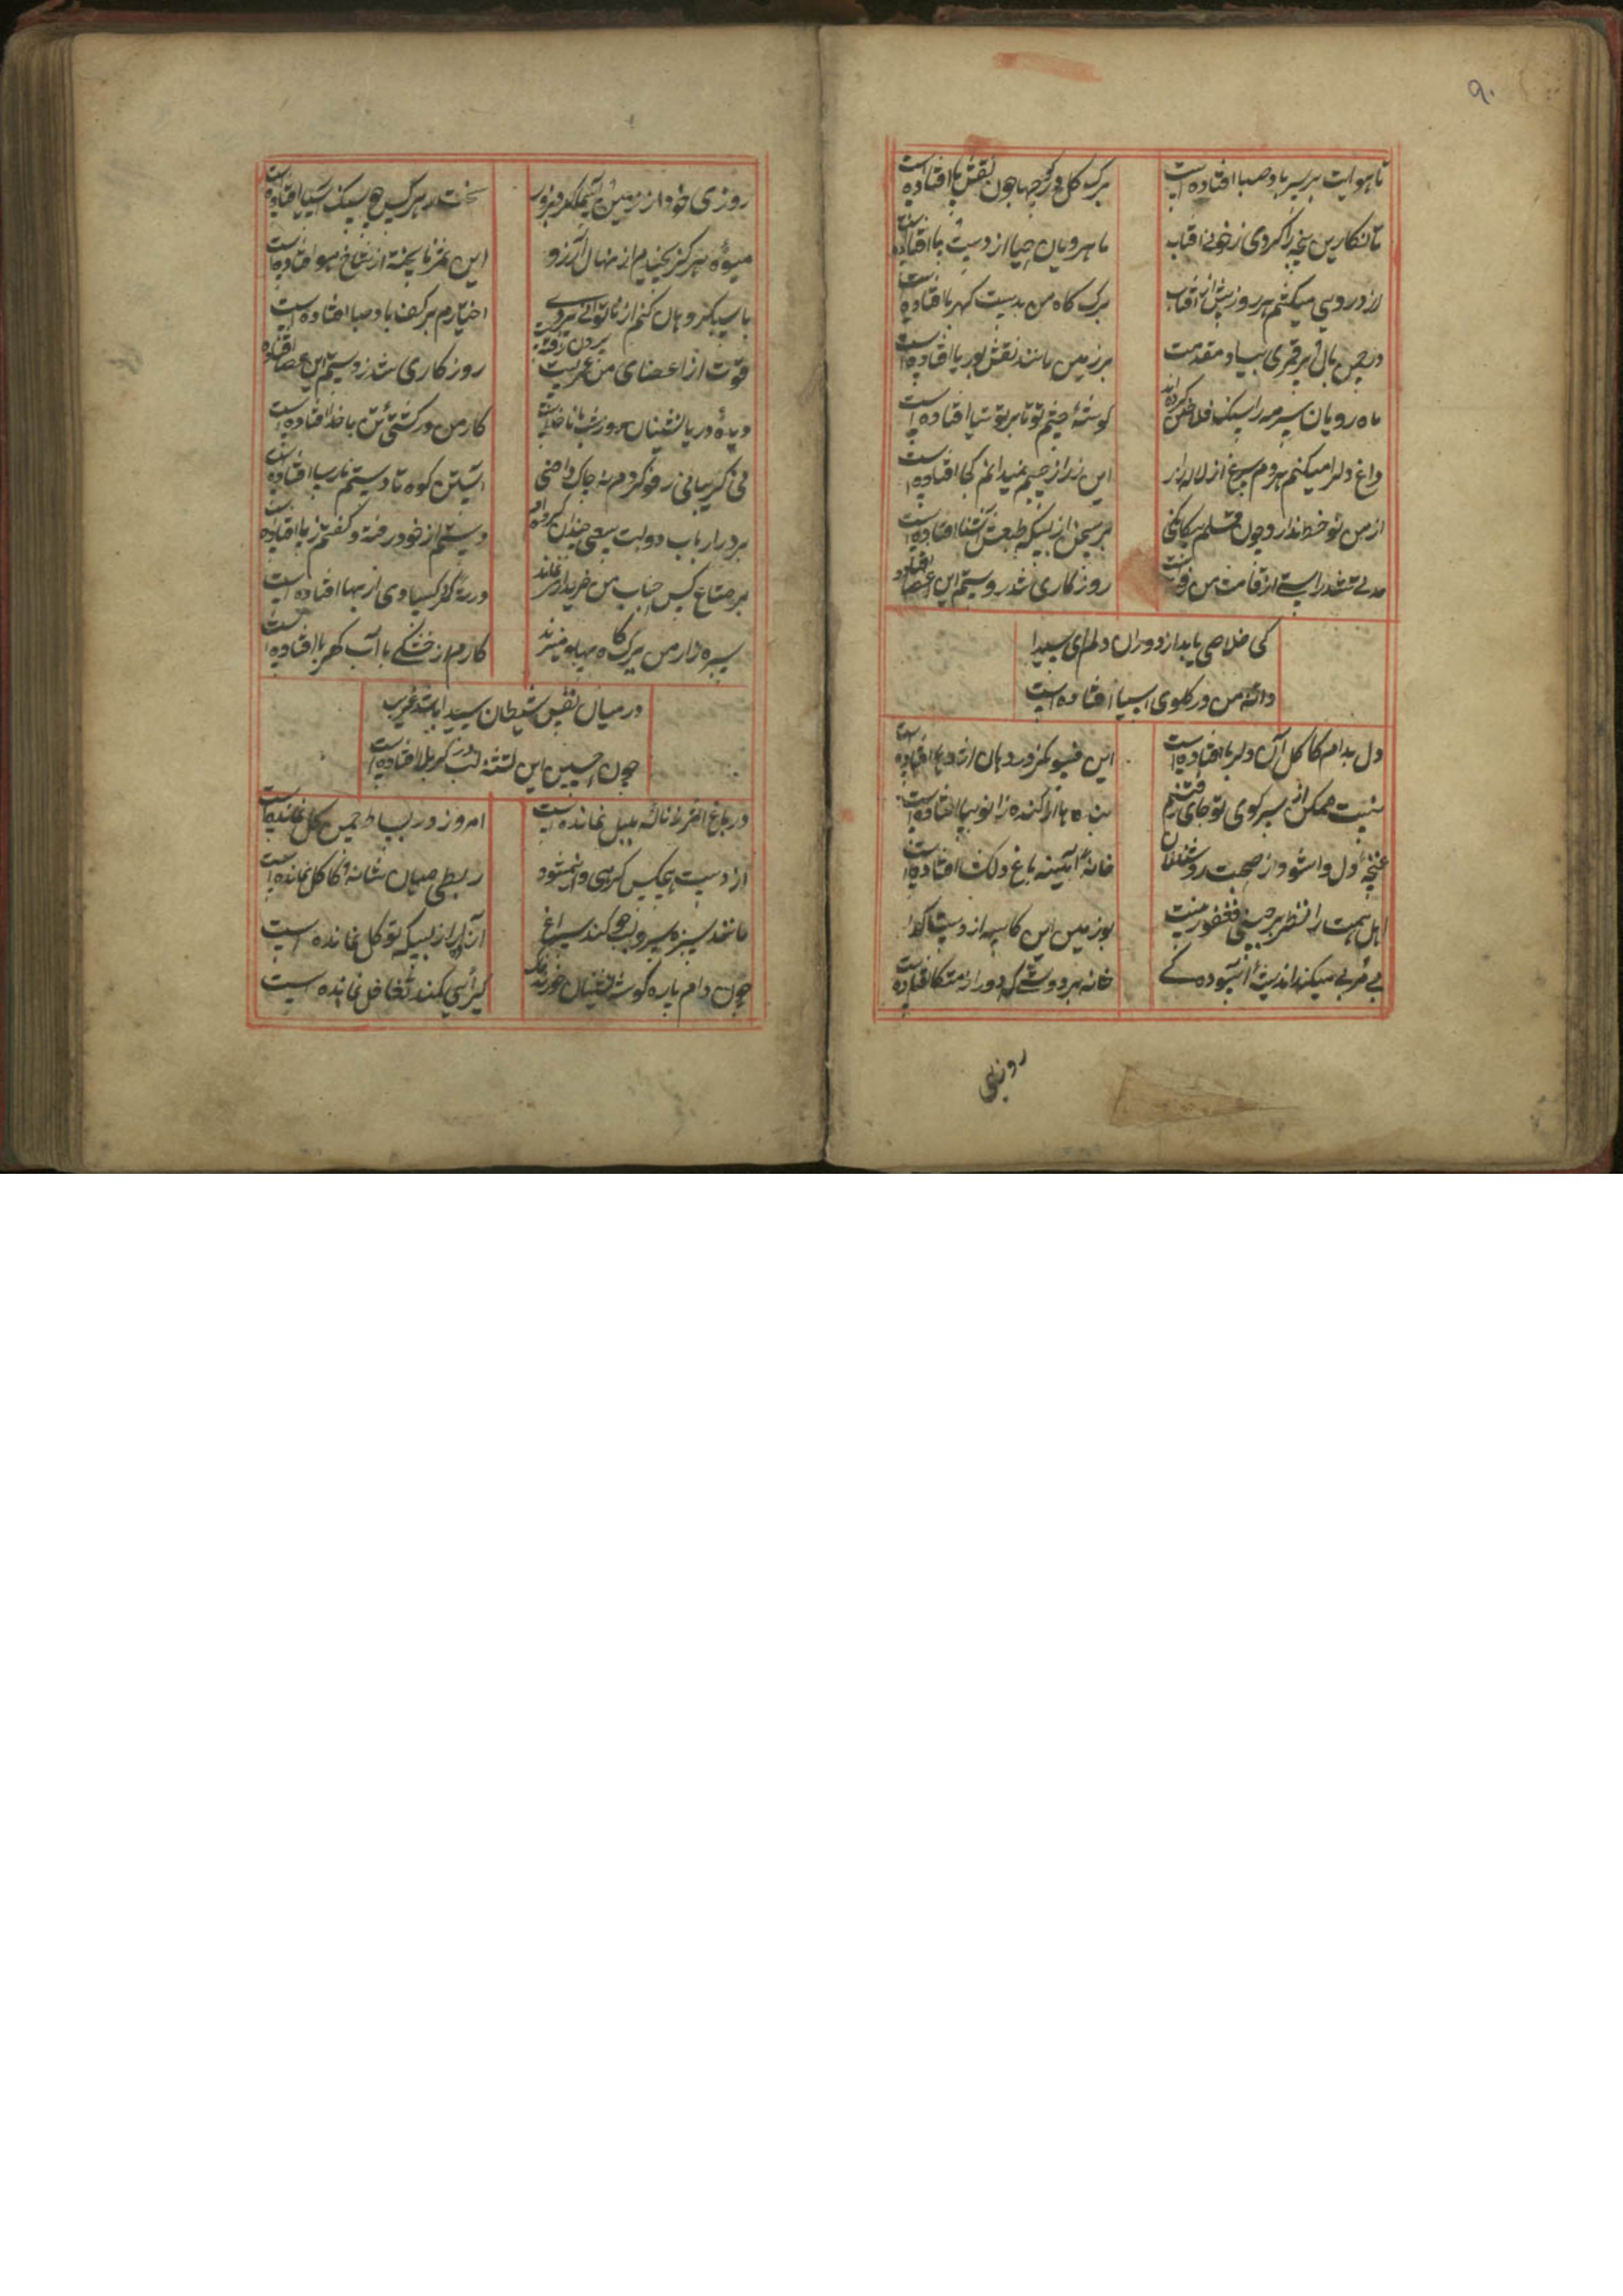 ۹۰
تا هوایت بر سر باد صبا افتاده است
برگ گل در کوچها چون نقش پا افتاده است
تا نگارین پنجه را کردی ز خون آفتاب
ماهرویان حیا از دست پا افتاده است
زرد رویی میکشم هر روز پیش آفتاب
برگ کاه من بدست کهربا افتاده است
در چمن بال و پر قمری بیاد مقدمت
بر زمین مانند نقش بوریا افتاده است
ماه رویان سرمه را سنگ فلاخن کرده اند
گوشهٔ چشم تو تا بر توتیا افتاده است
داغ دل را میکنم هر دم سراغ از لاله زار
این زر از جیبم نمیدانم کجا افتاده است
از من نو خط ندارد چون قلم بیگانگی
بر سخن از بسکه طبعش آشنا افتاده است
مدتی شد راستی از قامت من رفته است
روزگاری شد ز دستم این عصا افتاده
کی خلاصی یابد از دوران دلم ای سیدا
دانه من در گلوی آسیا افتاده است
دل بدام کاکل آن دلربا افتاده است
این در دهان اژدها افتاده
نیست ممکن از سر کوی تو جای رفتنم
بنده پا از کنده زانو بپا افتاده است
غنچهٔ دل وا شود از صحبت روشندلان
خانهٔ آیینه باغ دلکشا افتاده است
اهل همت را نظر بر چینی فغفور نیست
بر زمین این کاسه از دست گدا
بی میکند اندیشهٔ آسوده کی
خانه بر دوشی که دور از متکا افتاده
روزی
روزی خود از زمین و
سخت در هر کس چو سنگ آسیا افتاده است
میوهٔ هرگز نچیدم از نهال آرزو
این ثمر ناپخته از شاخ هوا افتاده است
با سبکروحان کنم از ناتوانی
اختیارم بر کف باد صبا افتاده است
قوت از اعضای من عمریست بیرون رفته
روزگاری شد ز دستم این عصا افتاده
دیدهٔ دریا نشینان روز و شب با ناخداست
کار من در کشتی تن با خدا افتاده است
نی گریبانی رفو کردم نه چاک دامنی
آستین کوه تا دستم نارسا افتاده است
بر در ارباب دولت سعی چندان کرده ام
دستم از خود رفته و کفشم ز پا افتاده است
بر متاع کس جناب من خریداری نماند
ورنه گرد کسادی از بها افتاده است
سبزه زار من برگ کاه پهلو میزند
کارم از خشکی با آب کهربا افتاده است
در میان نفس شیطان سیدا باشد غریب
چون حسین این تشنه لب در کربلا افتاده است
در باغ نالهٔ بلبل نمانده است
امروز در بساط چمن گل نمانده است
از دست هیچکس گرهی وا نمیشود
ربطی میان شانه و کاکل نمانده است
مانند سبزه بر لب جو کند سراغ
آنرا از بسکه توکل نمانده است
چون دام پاره گوشه نشینان خورند
گیرایی کمند تغافل نمانده است